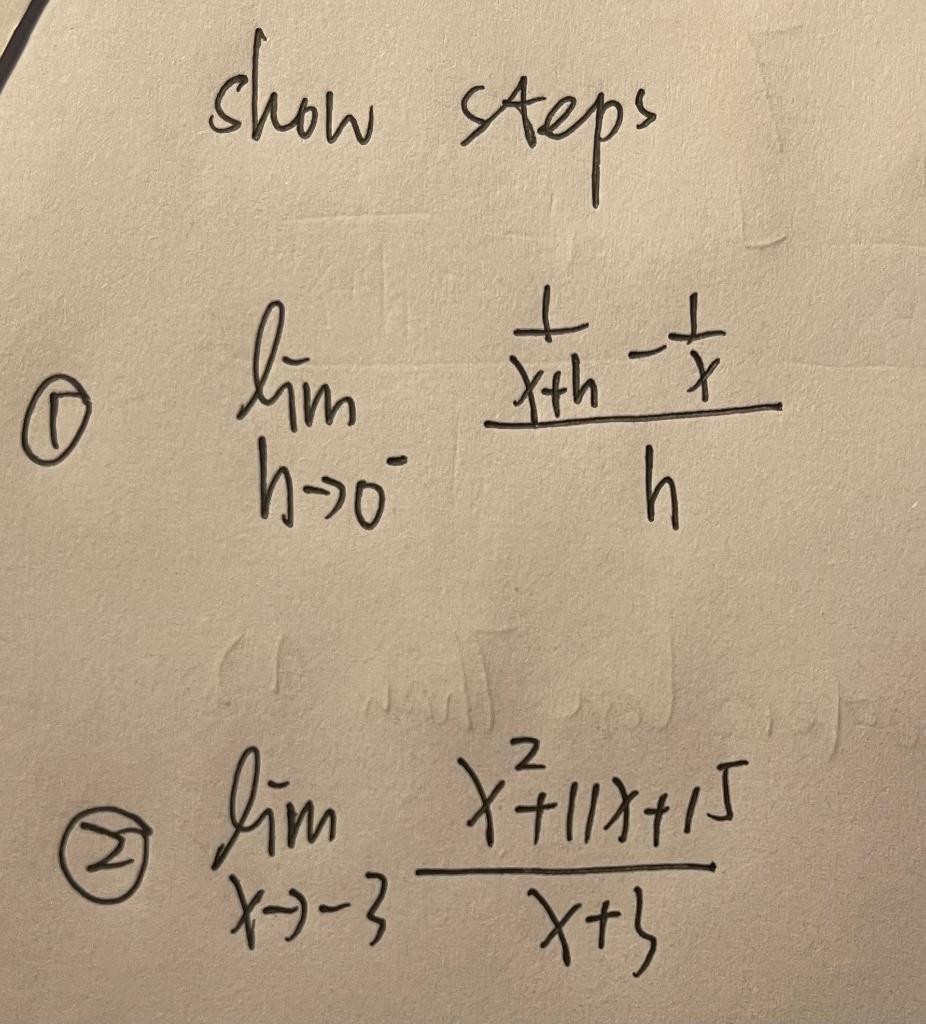 show steps
① lim h→0⁻ (1/(x+h) - 1/x)/h
② lim x→-3 (x²+11x+15)/(x+3)